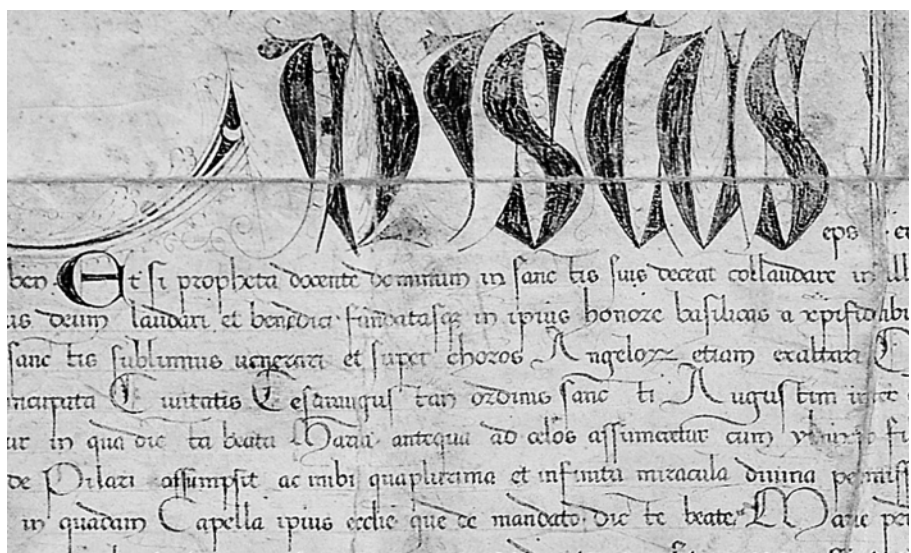 ixtus
eps
ben. Et si propheta docente dominum in sanc tis suis deceat collaudare in
deum laudari et benedici fundatasq in ipius honore basilicas a
sanc tis sublimius uenerari et super choros Angelorz etiam exaltari
Ciuitatis Cesaraugus tan ordinis sanc ti Augustini
ur in qua dic ta beata Maria antequa ad celos assumeretur cum
de Pilari assumpsit ac inibi quaplurima et infinita miracula diuina
in quadam Capella ipius ecclie que de mandato dic te beate Marie